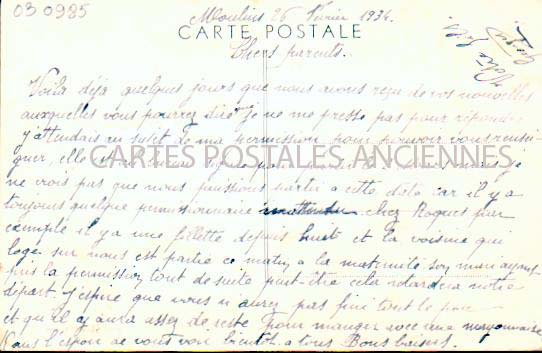 03 0985
Moulins 26 Février 1934.
CARTE POSTALE
Chers parents.
Voilà déjà quelques jours que nous avons reçu de vos nouvelles
auxquelles vous pourrez dire je ne me presse pas pour répondre
j'attendais au sujet de ma permission pour pouvoir vous rensei-
gner, elle est
CARTES POSTALES ANCIENNES
ne crois pas que nous puissions partir a cette date car il y a
toujours quelque permissionnaire inattendu chez Roques par
exemple il y a une fillette depuis huit et la voisine qui
loge sur nous est partie ce matin a la maternité son mari ayant
pris la permission tout de suite peut-être cela retardera notre
départ. J'espère que vous n'aurez pas fini tout le porc
et qu'il y aura assez de reste pour manger avec une mayonnaise
Dans l'espoir de vous voir bientôt a tous Bons baisers.
Votre fils